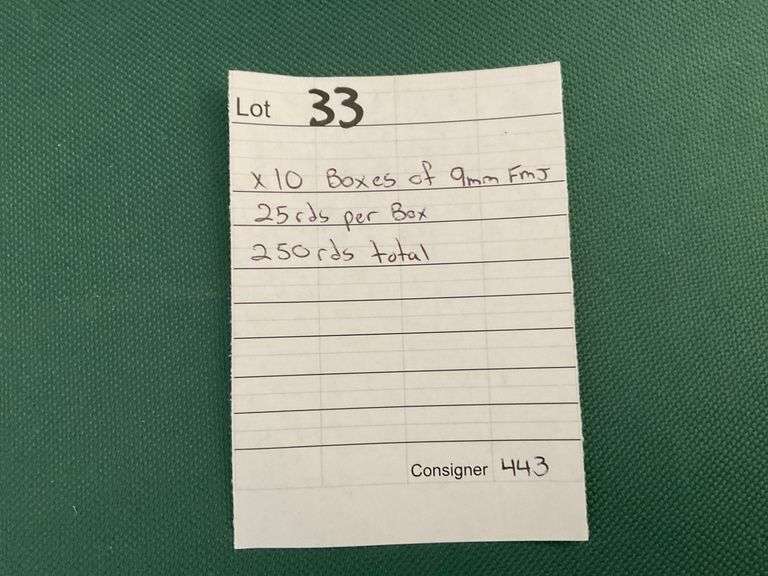 Lot 33
x10 Boxes of 9mm FmJ
25rds per Box
250rds total
Consigner 443